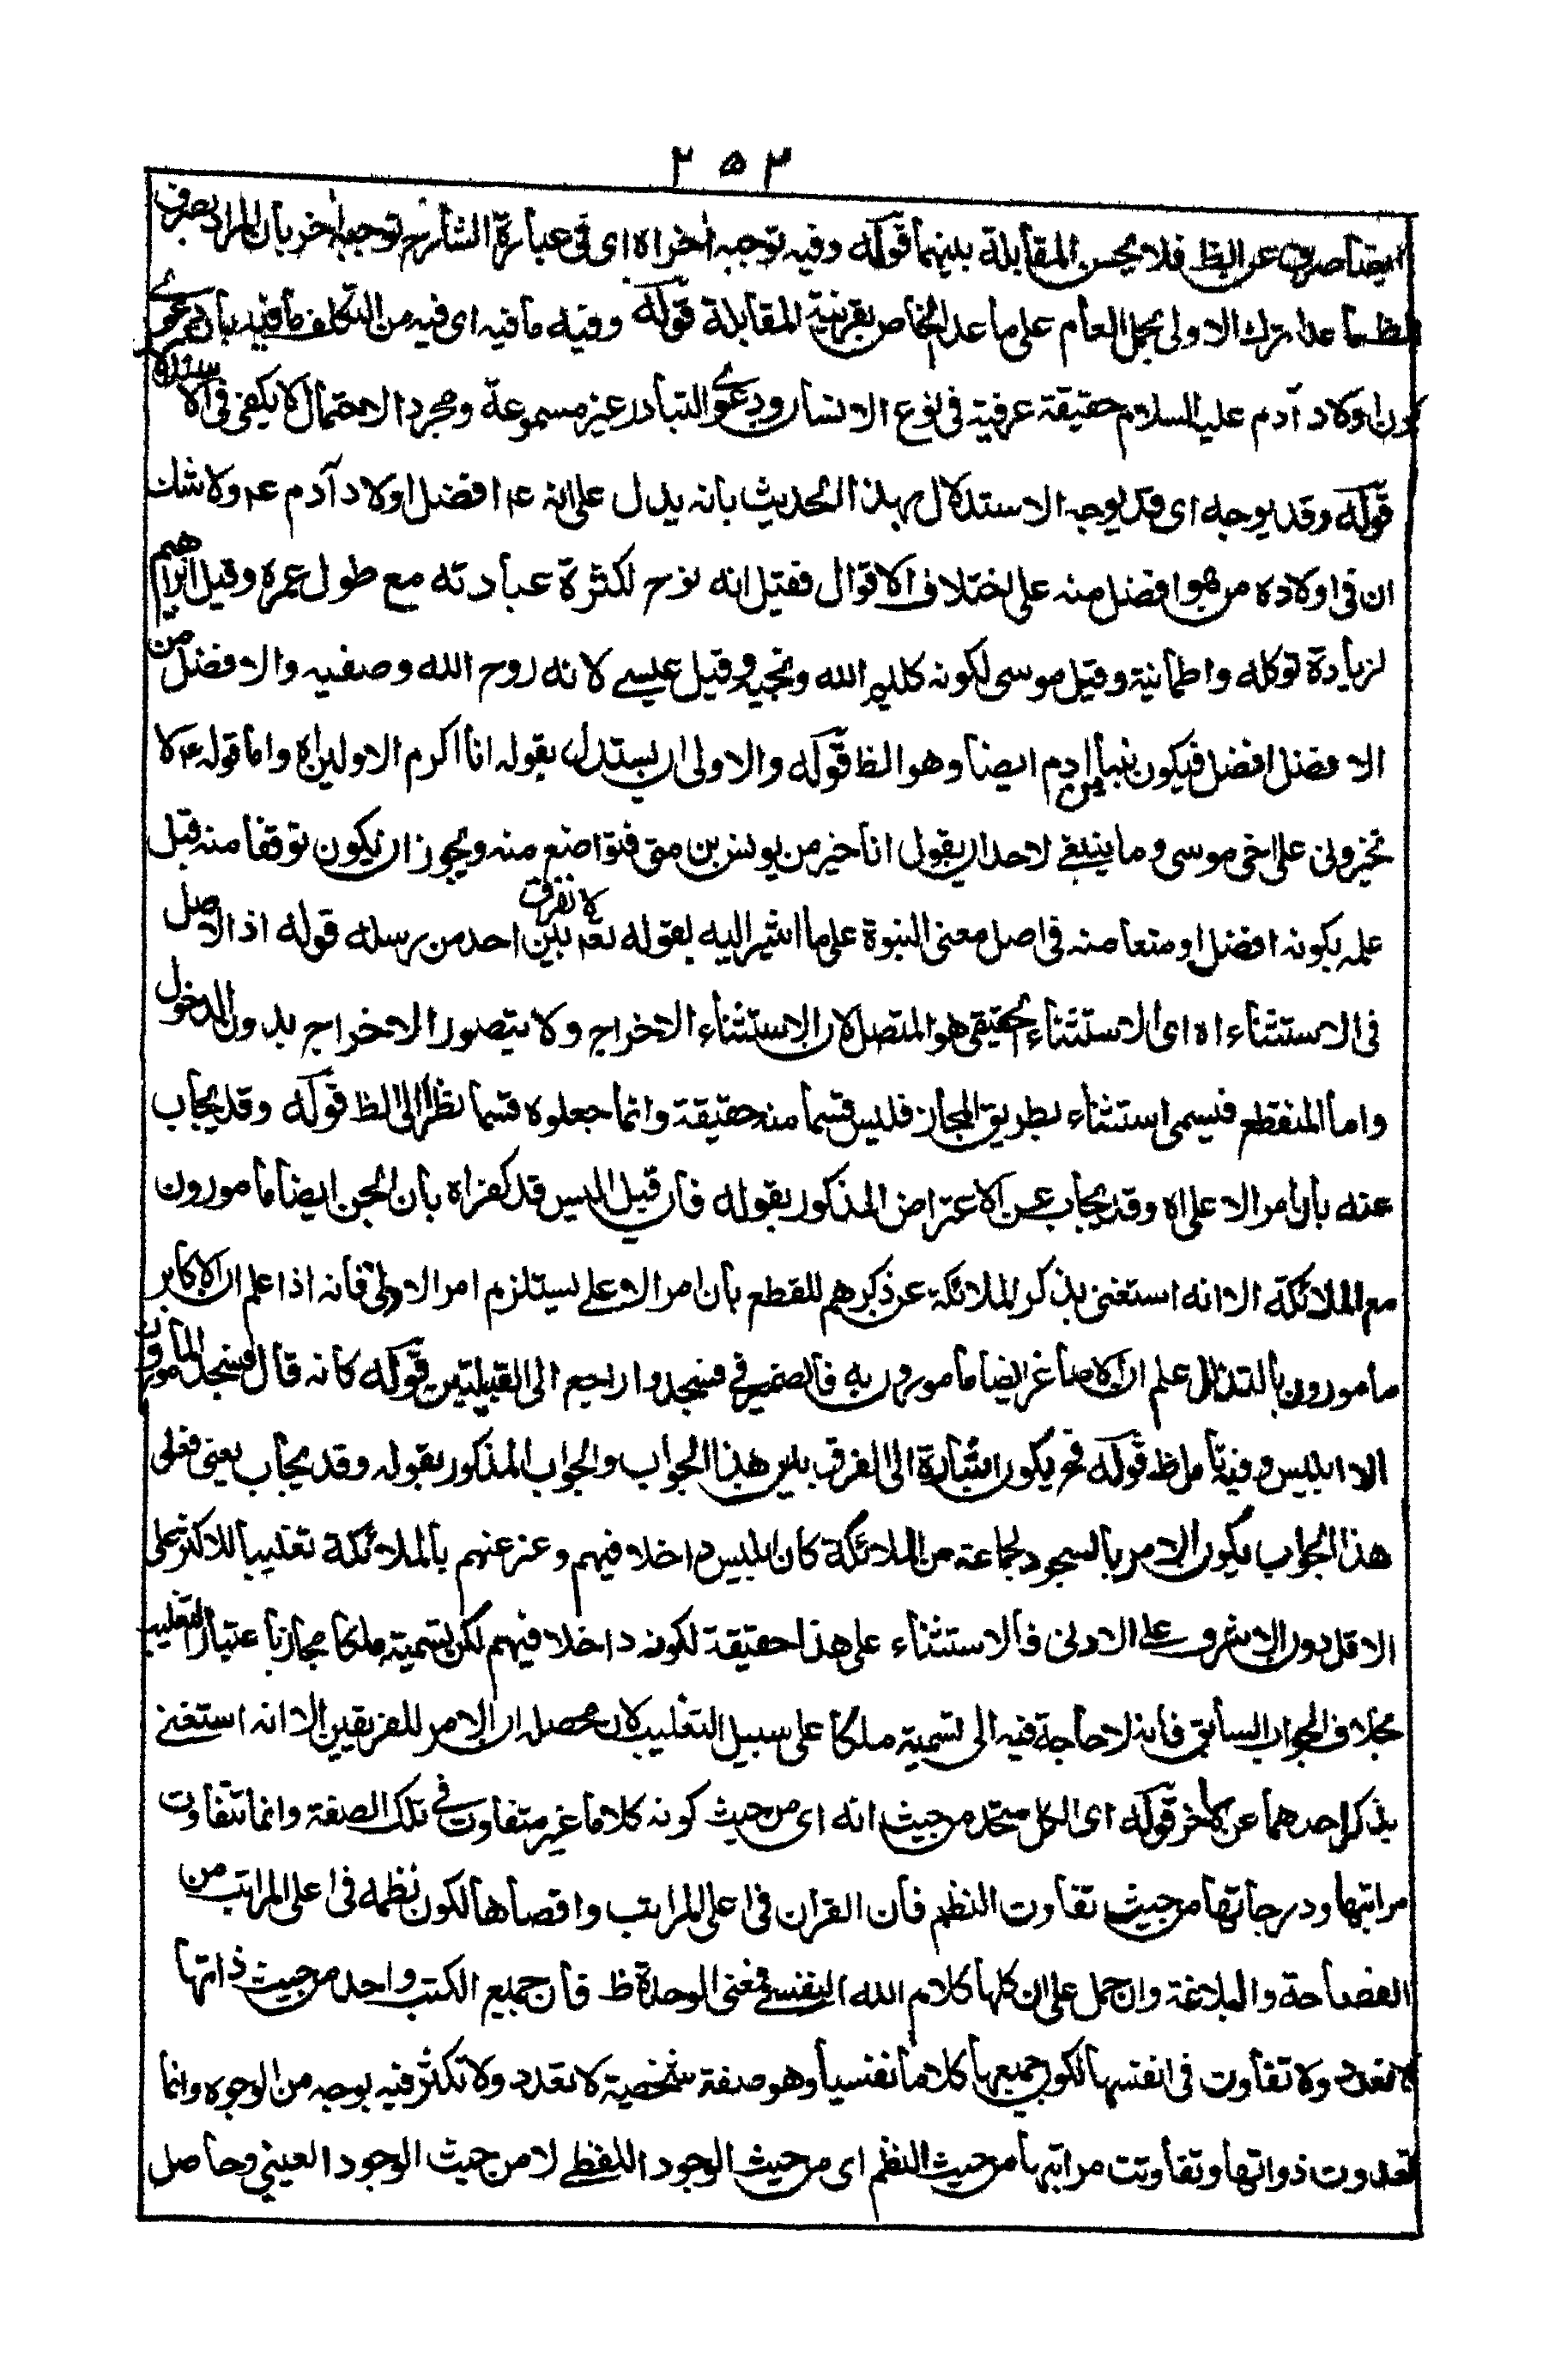 ٢٥٣
ايضا صرف عن الظ فلا يحسن المقابلة بينهما قوله وفيه توجيه اخر اه اى فى عبارة الشارح توجيه اخر بان المراد بصرف
الظ ما عدا ترك الاولى بحمل العام على ما عدا الخاص بقرينة المقابلة قوله وفيه ما فيه اى فيه من التكلف ما فيه بيان دعوى
كون اولاد آدم عليه السلام حقيقة عرفية فى نوع الانسان ودعوى التبادر غير مسموعة ومجرد الاحتمال لا يكفى فى الاستدلال
قوله وقد يوجه اى وقد يوجه الاستدلال بهذا الحديث بانه يدل على انه عم افضل اولاد آدم عم ولا شك
ان فى اولاده من هو افضل منه على اختلاف الاقوال فقيل انه نوح لكثرة عبادته مع طول عمره وقيل ابراهيم
لزيادة توكله واطمانية وقيل موسى لكونه كليم الله ونجيه وقيل عيسى لانه روح الله وصفيه والافضل من
الافضل افضل فيكون نبينا من ادم ايضا وهو الظ قوله والاولى ان يستدل بقوله انا اكرم الاولين اه واما قوله عم لا
تخيرونى على اخى موسى وما ينبغى لاحد ان يقول انا خير من يونس بن متى فتواضع منه ويجوز ان يكون توقفا منه قبل
علمه بكونه افضل او منعا منه فى اصل معنى النبوة على ما اشير اليه بقوله تعم لا نفرق بين احد من رسله قوله اذ الاصل
فى الاستثناء اه اى الاستثناء الحقيقى هو المتصل لان الاستثناء الاخراج ولا يتصور الاخراج بدون الدخول
واما المنقطع فيسمى استثناء بطريق المجاز فليس قسما منه حقيقة وانما جعلوه قسما نظرا الى الظ قوله وقد يجاب
عنه بان امر الاعلى اه وقد يجاب عن الاعتراض المذكور بقوله فان قيل ابليس قد كفر اه بان الجن ايضا مامورون
مع الملائكة الا انه استغنى بذكر الملائكة عن ذكرهم للقطع بان امر الاعلى يستلزم امر الادنى فانه اذا علم ان الاكابر
مامورون بالتذلل علم ان الاصاغر ايضا مامورون به فالضمير فى فسجدوا راجع الى القبيلتين قوله كانه قال فسجد المامورون
الا ابليس وفيه تامل ظ قوله فح يكون اشارة الى الفرق بين هذا الجواب والجواب المذكور بقوله وقد يجاب يعنى فعلى
هذا الجواب يكون الامر بالسجود لجماعة من الملائكة كان ابليس داخلا فيهم وعبر عنهم بالملائكة تغليبا للاكثر على
الاقل دون الاشرف على الادنى فالاستثناء على هذا حقيقة لكونه داخلا فيهم لكن تسميته ملكا مجاز باعتبار التغليب
بخلاف الجواب السابق فانه لا حاجة فيه الى تسميته ملكا على سبيل التغليب لان محصله ان الامر للفريقين الا انه استغنى
بذكر احدهما عن الاخر قوله اى الكل متحد من حيث انه اى من حيث كونه كلاما غير متفاوت فى تلك الصفة وانما تتفاوت
مراتبها ودرجاتها من حيث تفاوت النظم فان القران فى اعلى المراتب واقصاها لكون نظمه فى اعلى المراتب من
الفصاحة والبلاغة وان حمل على ان كلها كلام الله النفسى فمعنى الوحدة ظ فان جميع الكتب واحد من حيث ذاتها
لا تعدد ولا تفاوت فى انفسها لكون جميعها كلاما نفسيا وهو صفة شخصية لا تعدد ولا تكثر فيه بوجه من الوجوه وانما
تعددت ذواتها وتفاوتت مراتبها من حيث النظم اى من حيث الوجود اللفظى لا من حيث الوجود العينى وحاصل